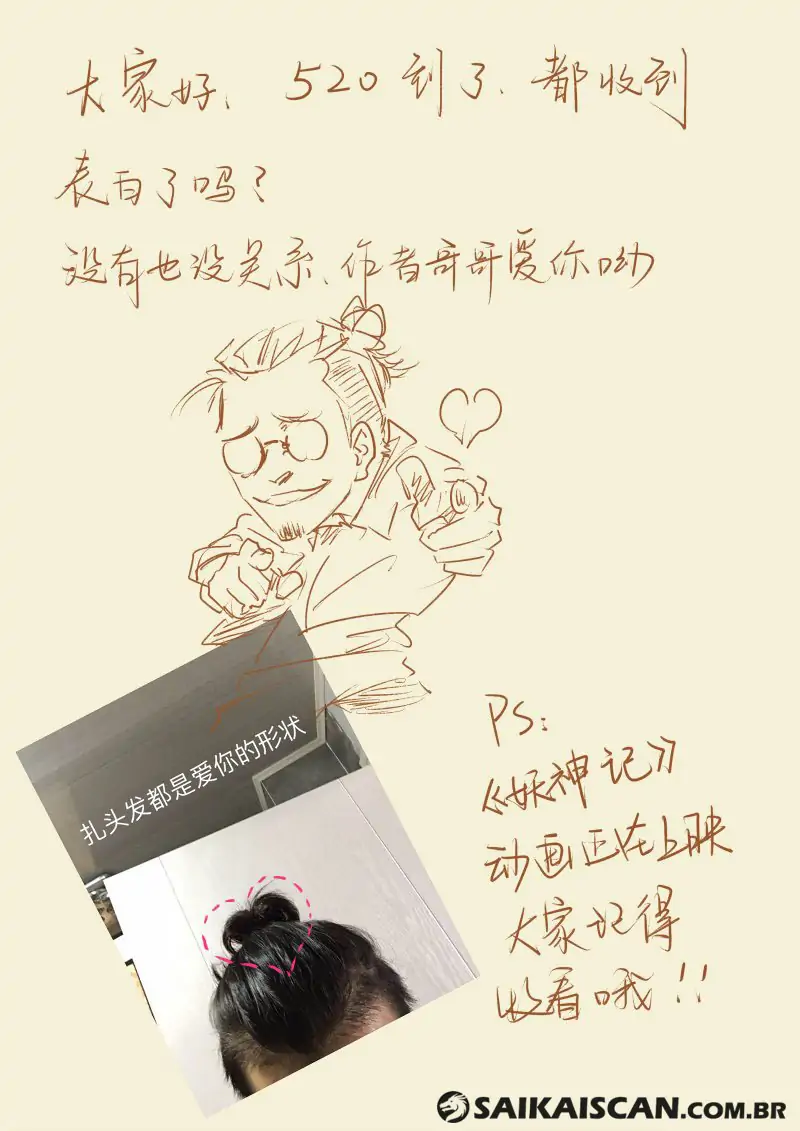 大家好、520到了、都收到
表白了吗？
没有也没关系、作者哥哥爱你呦
扎头发都是爱你的形状
PS：
《妖神记》
动画正在上映
大家记得
收看哦！！
SAIKAISCAN.COM.BR